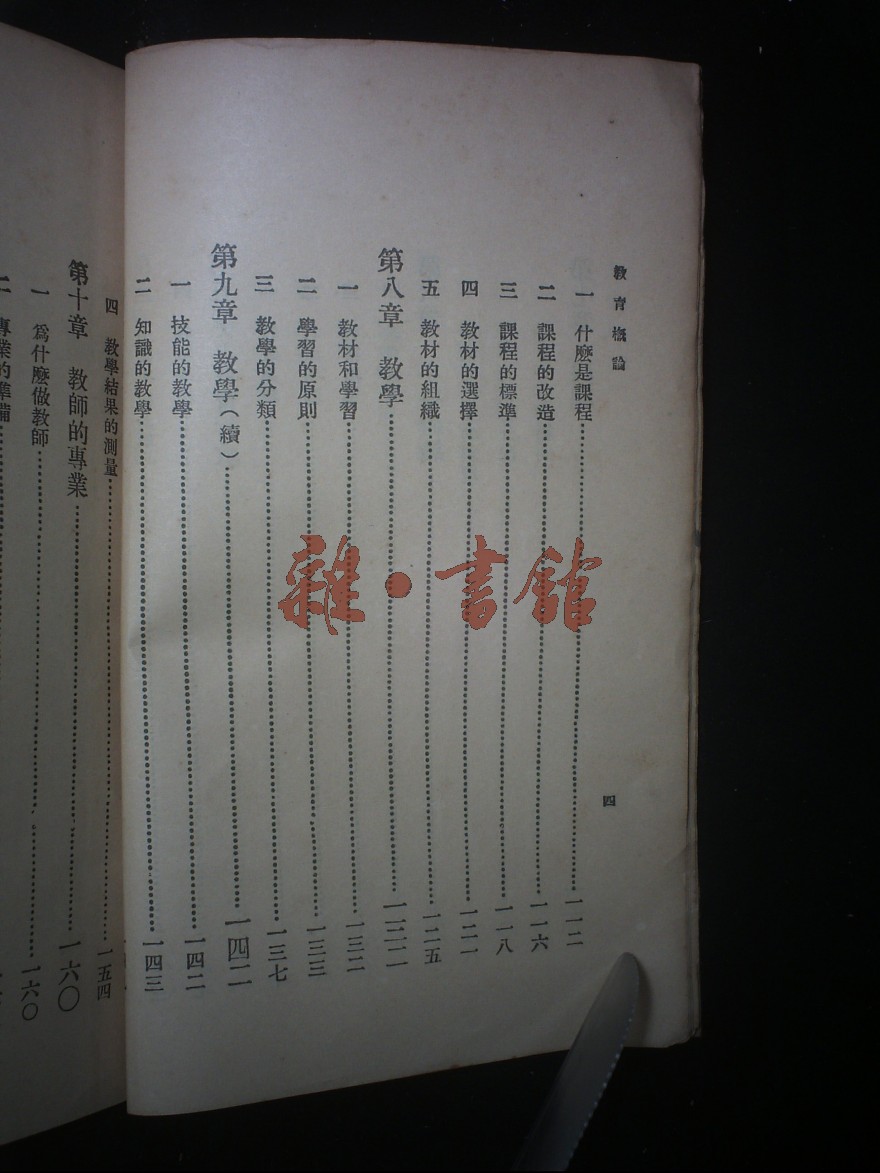 教育概論
四
一 什麼是課程……一一二
二 課程的改造……一一六
三 課程的標準……一一八
四 教材的選擇……一二一
五 教材的組織……一二五
第八章 教學……一三二
一 教材和學習……一三二
二 學習的原則……一三三
三 教學的分類……一三七
第九章 教學(續)……一四二
一 技能的教學……一四二
二 知識的教學……一四三
四 教學結果的測量……一五四
第十章 教師的專業……一六〇
一 爲什麼做教師……一六〇
二 專業的準備
雜·書館